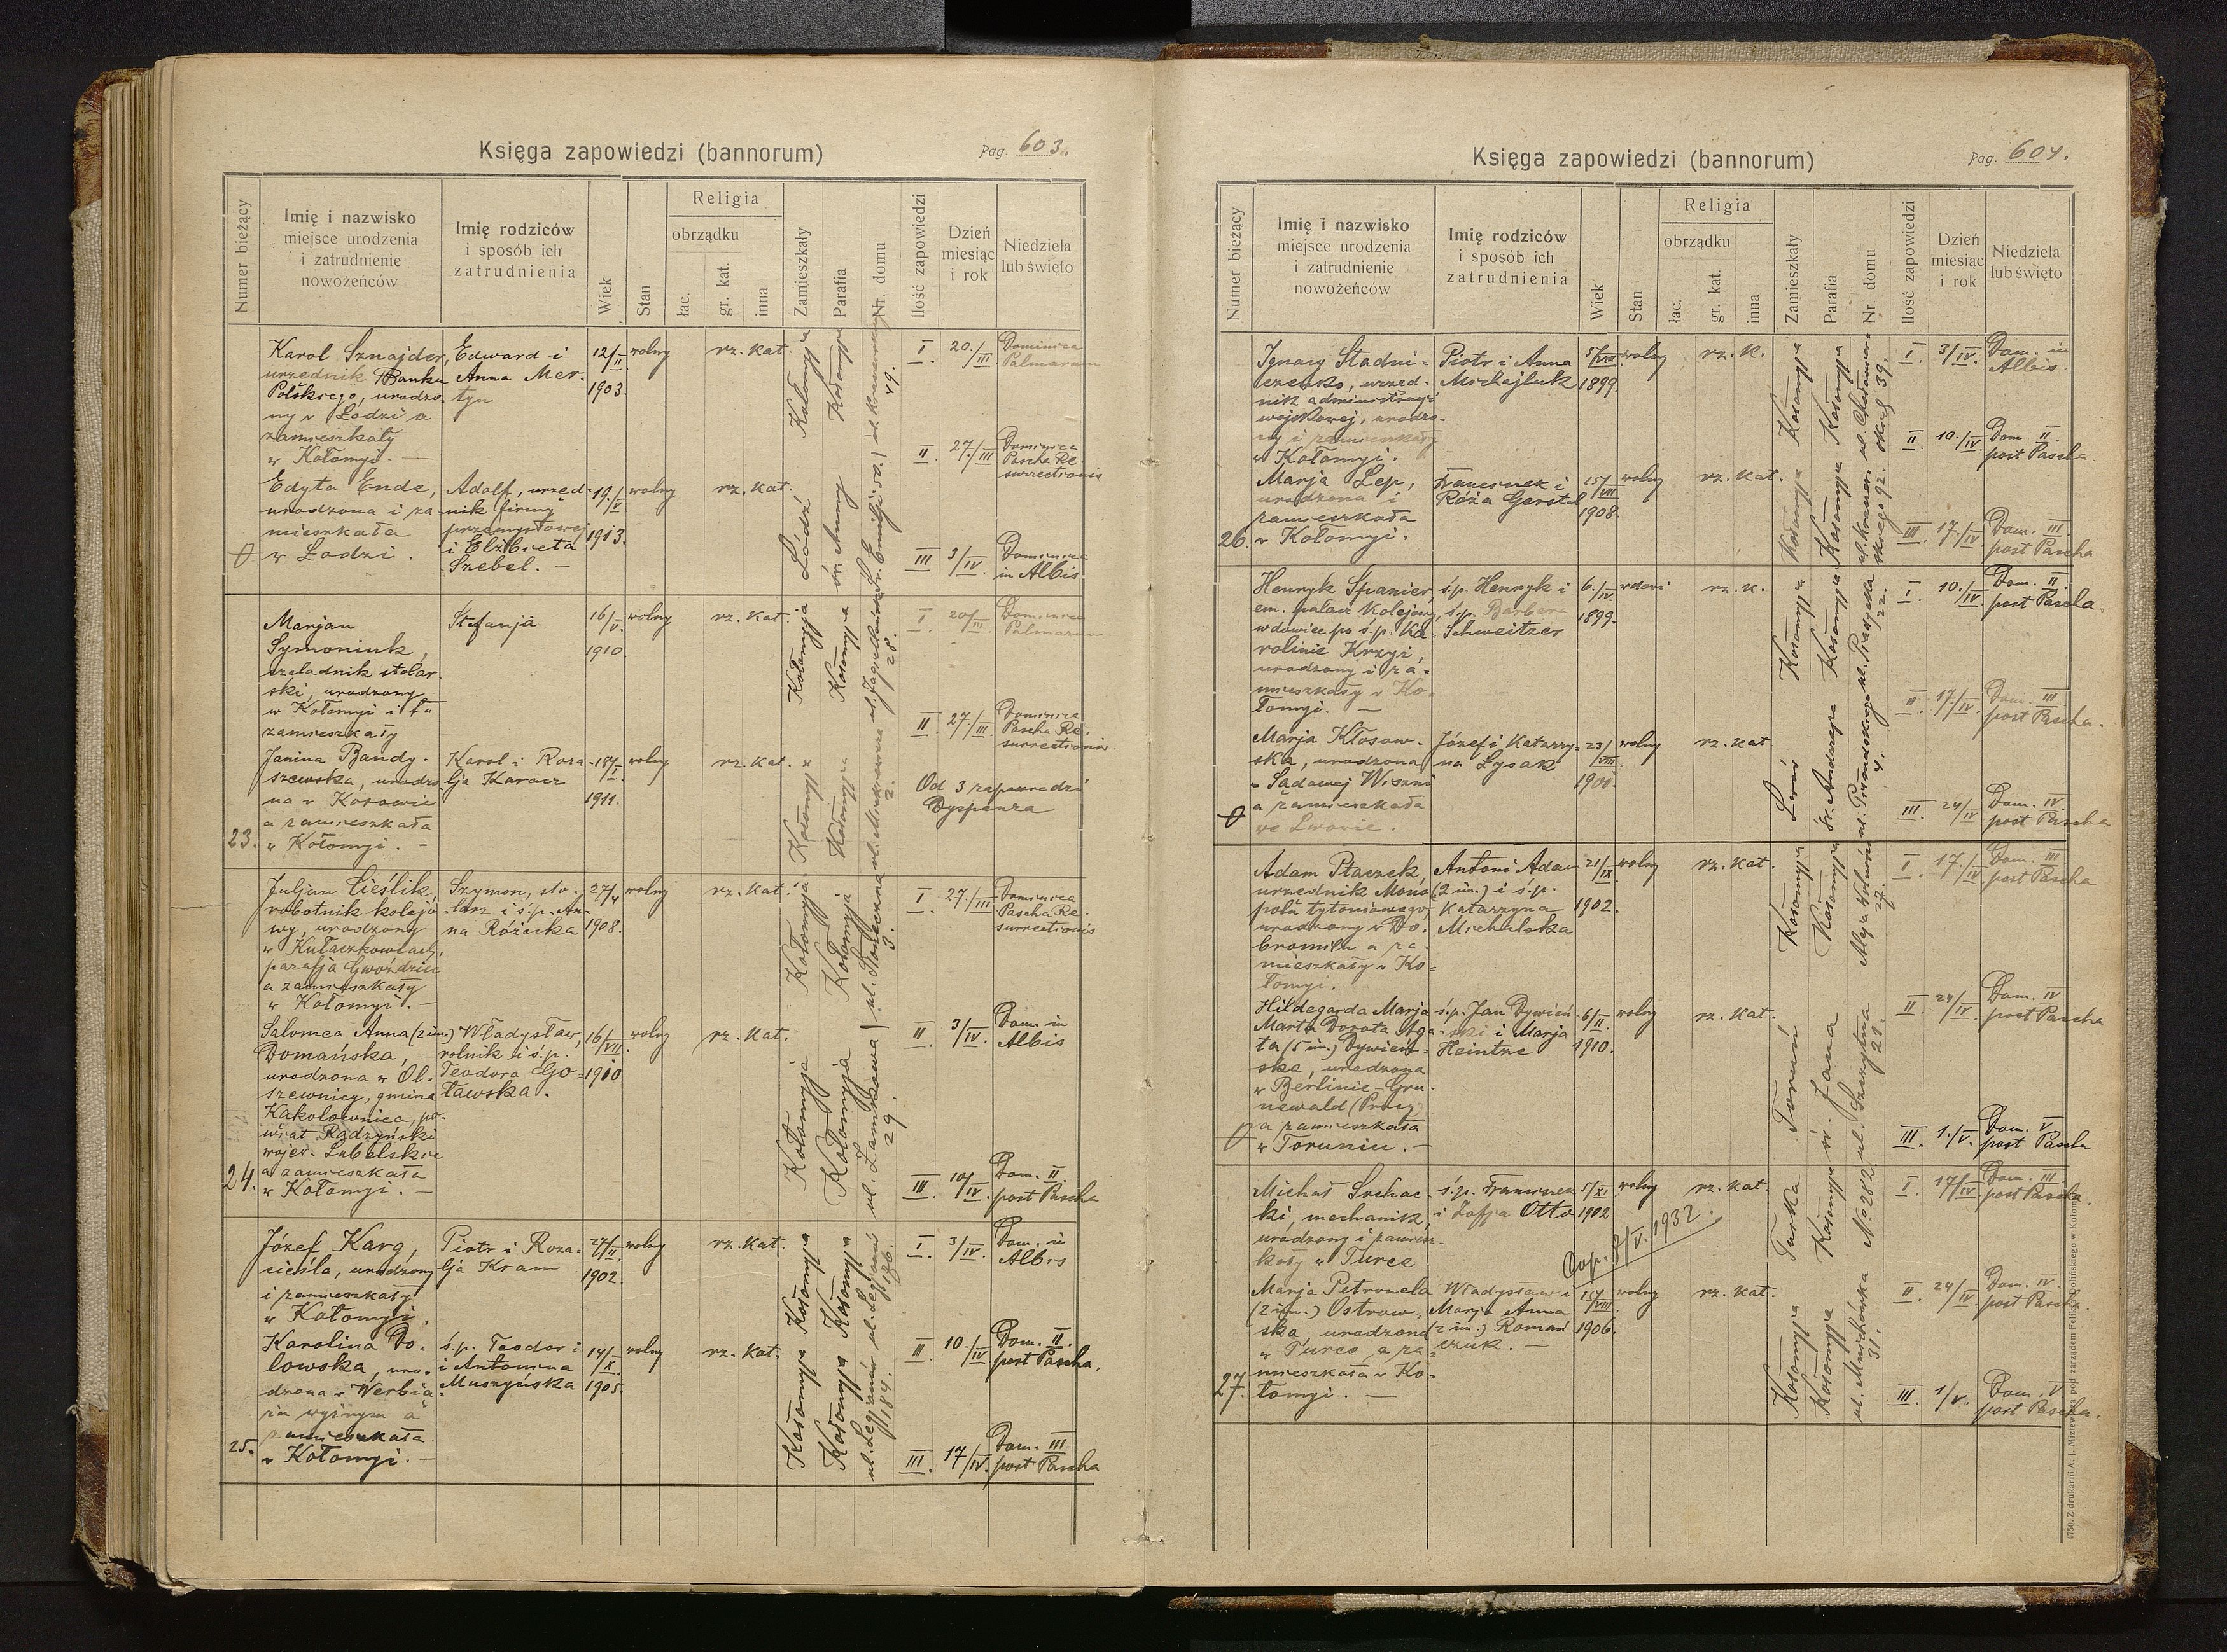 Księga zapowiedzi (bannorum)
Pag. 603.
Numer bieżący
Imię i nazwisko
miejsce urodzenia
i zatrudnienie
nowożeńców
Imię rodziców
i sposób ich
zatrudnienia
Wiek
Stan
Religia
obrządku
łac.
gr. kat.
inna
Zamieszkały
Parafia
Nr. domu
Ilość zapowiedzi
Dzień
miesiąc
i rok
Niedziela
lub święto
Karol Sznajder,
urzednik Banku
Polskiego, urodzo-
ny w Łodzi a
zamieszkały
w Kołomyi. —
Edward i
Anna Mer-
tyn
12/II
1903.
wolny
rz. kat.
Kołomyja
Kołomyja
49.
I
20./III
Dominica
Palmarum
II
27./III
Dominica
Pascha Re-
surrectionis
Edyta Ende,
urodzona i za-
mieszkała
w Łodzi.
Adolf, urzęd-
nik firmy
przemysłowej
i Elżbieta
Szebel. —
19./V.
1913.
wolny
rz. kat.
Łódź
św. Anny
III
3/IV.
Dominica
in Albis
23.
Marjan
Symoniuk,
czeladnik stolar-
ski, urodzony
w Kołomyi i tu
zamieszkały
Stefanja
16/V.
1910.
wolny
rz. kat.
Kołomyja
Kołomyja
28.
I
20/III.
Dominica
Palmarum
II
27./III.
Dominica
Pascha Re-
surrectionis.
Janina Bandy-
szewska, urodzo-
na w Kosowie
a zamieszkała
w Kołomyi. —
Karol i Roza-
lja Karacz
18/I.
1911.
wolny
rz. kat.
Kołomyja
Kołomyja
2.
Od 3 zapowiedzi
Dyspenza
24.
Juljan Cieślik,
robotnik kolejo-
wy, urodzony
w Kułaczkowcach,
parafja Gwoździec
a zamieszkały
w Kołomyi. —
Szymon, sto-
larz i ś.p. An-
na Różecka
27/4
1908.
wolny
rz. kat.
Kołomyja
Kołomyja
ul. Słoneczna
3.
I.
27./III
Dominica
Pascha Re-
surrectionis
Salomea Anna (2 im.)
Domańska,
urodzona w Ol-
szewnicy, gmina
Kąkolownica, po-
wiat Radzyński
wojew. Lubelskie
a zamieszkała
w Kołomyi. —
Władysław,
rolnik i ś.p.
Teodora Go-
ławska.
16/VII.
1910
wolny
rz. kat.
Kołomyja
Kołomyja
ul. Zamkowa
29.
II.
3/IV.
Dom. in
Albis
III.
10/IV.
Dom. II.
post Pascha
25.
Józef Karg,
cieśla, urodzony
i zamieszkały
w Kołomyi.
Piotr i Roza-
lja Kram
27/II
1902.
wolny
rz. kat.
Kołomyja
Kołomyja
ul. Legjonów
126.
I.
3/IV.
Dom. in
Albis
Karolina Do-
lowska, uro-
dzona w Werbią-
żu wyżnym a
zamieszkała
w Kołomyi. —
ś.p. Teodor i
i Antonina
Muszyńska
14/X.
1905.
wolny
rz. kat.
Kołomyja
Kołomyja
ul. Legjonów
184.
II.
10./IV.
Dom. II.
post Pascha.
III.
17/IV.
Dom. III
post Pascha
Księga zapowiedzi (bannorum)
Pag. 604.
Numer bieżący
Imię i nazwisko
miejsce urodzenia
i zatrudnienie
nowożeńców
Imię rodziców
i sposób ich
zatrudnienia
Wiek
Stan
Religia
obrządku
łac.
gr. kat.
inna
Zamieszkały
Parafia
Nr. domu
Ilość zapowiedzi
Dzień
miesiąc
i rok
Niedziela
lub święto
26.
Ignacy Stadni-
czenko, urzęd-
nik administracji
wojskowej, urodzo-
ny i zamieszkały
w Kołomyi.
Piotr i Anna
Michajluk
5/VIII.
1899.
wolny
rz. k.
Kołomyja
Kołomyja
39.
I.
3/IV.
Dom. in
Albis.
II
10./IV.
Dom. II.
post Pascha
Marja Lep,
urodzona i
zamieszkała
w Kołomyi.
Franciszek i
Róża Gerstel
15/VII
1908.
wolny
rz. kat.
Kołomyja
Kołomyja
92.
III
17./IV.
Dom. III.
post Pascha
Henryk Spanier,
em. palacz kolejowy,
wdowiec po ś.p. Ka-
rolinie Krzyż,
urodzony i za-
mieszkały w Ko-
łomyi. —
ś.p. Henryk i
ś.p. Barbara
Schweitzer
6./IV.
1899.
rz. k.
Kołomyja
Kołomyja
22.
I.
10./IV.
Dom. II
post Pascha.
II.
17./IV.
Dom. III
post Pascha.
Marja Kłosow-
ska, urodzona
w Sądowej Wiszni
a zamieszkała
we Lwowie.
Józef i Katarzy-
na Lysak
23/VIII.
wolny
rz. kat
Lwów
św. Andrzeja
4.
III.
24/IV
Dom. IV.
post Pascha
Adam Ptaczek,
urzednik Mono-
polu tytoniowego,
urodzony w Do-
bromilu a za-
mieszkały w Ko-
łomyi.
Antoni Adam
(2 im.) i ś.p.
Katarzyna
Michalska
21/IX.
1902.
wolny
rz. kat.
Kołomyja
Kołomyja
27.
I.
17./IV.
Dom. III
post Pascha
Hildegarda Marja
Marta Dorota Aga-
ta (5 im.) Dywień-
ska, urodzona
w Berlinie-Gru-
newald (Prusy)
a zamieszkała
w Toruniu. —
ś.p. Jan Dywień-
ski i Marja
Heintze
6/II.
1910.
wolny
rz. kat.
Toruń
św. Jana
II.
24/IV.
Dom. IV
post Pascha
III.
1./V.
Dom. V
post Pascha
27.
Michał Sochac-
ki, mechanik,
urodzony i zamiesz-
kały w Turce
ś.p. Franciszek
i Zofja Otto
1902
wolny
rz. kat.
Turka
Kołomyja
No 282
I.
17/IV.
Dom. III.
post Pascha.
Marja Petronela
(2 im.) Ostrow-
ska, urodzona
w Turce a za-
mieszkała w Ko-
łomyi. —
Władysław i
Marja Anna
(2 im.) Roman-
czuk. —
15/VIII.
1906.
wolny
rz. kat.
Kołomyja
Kołomyja
31.
II.
24/IV.
Dom. IV.
post Pascha.
III.
1/V.
Dom. V.
post Pascha.